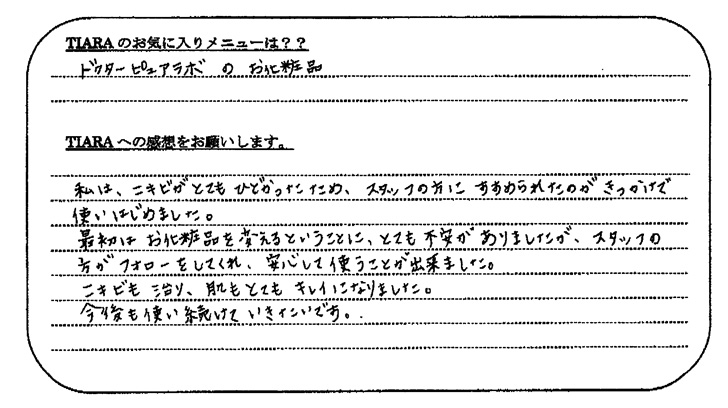 TIARAのお気に入りメニューは？？
ドクターピュアラボ の お化粧品
TIARAへの感想をお願いします。
私は、ニキビがとてもひどかったため、スタッフの方にすすめられたのがきっかけで
使いはじめました。
最初は お化粧品を変えるということに、とても不安がありましたが、スタッフの
方がフォローをしてくれ、安心して使うことが出来ました。
ニキビも治り、肌もとてもキレイになりました。
今後も使い続けていきたいです。